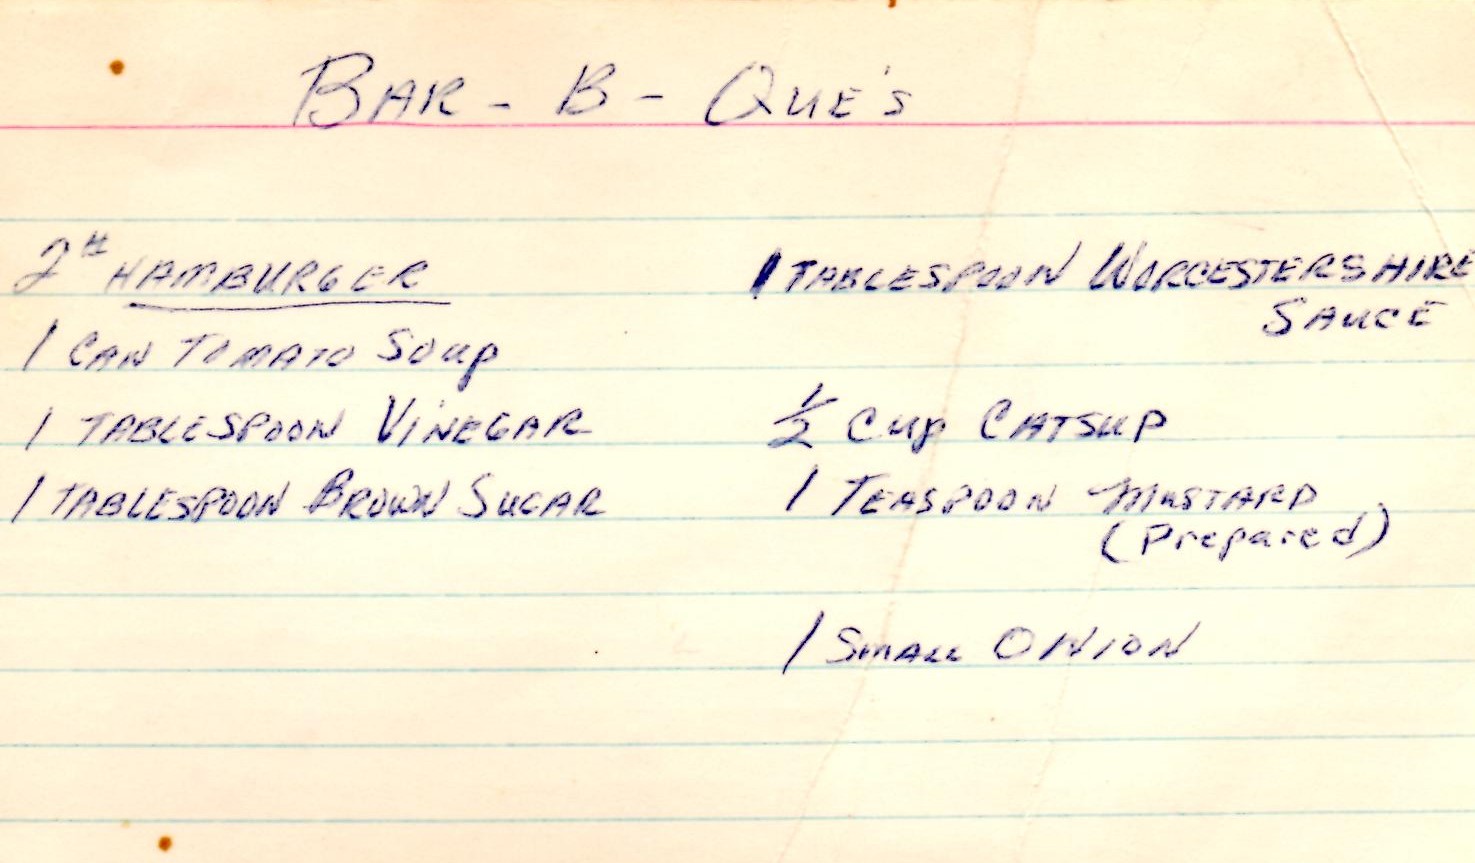 BAR - B - QUE'S
2# HAMBURGER
1 CAN TOMATO SOUP
1 TABLESPOON VINEGAR
1 TABLESPOON BROWN SUGAR
1 TABLESPOON WORCESTERSHIRE
SAUCE
1/2 CUP CATSUP
1 TEASPOON MUSTARD
(Prepared)
1 SMALL ONION